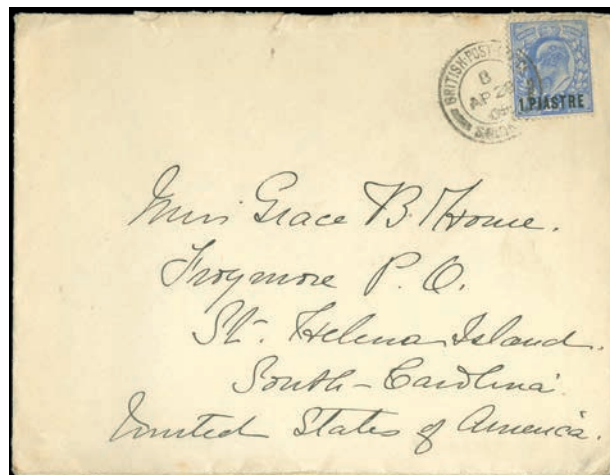 BRITISH·POST·
B
AP 28
1 PIASTRE
Miss Grace B. House.
Frogmore P. O.
St. Helena Island.
South-Carolina.
United States of America.